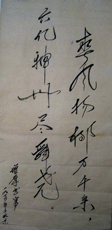 春风杨柳万千条。
六亿神州尽舜尧。